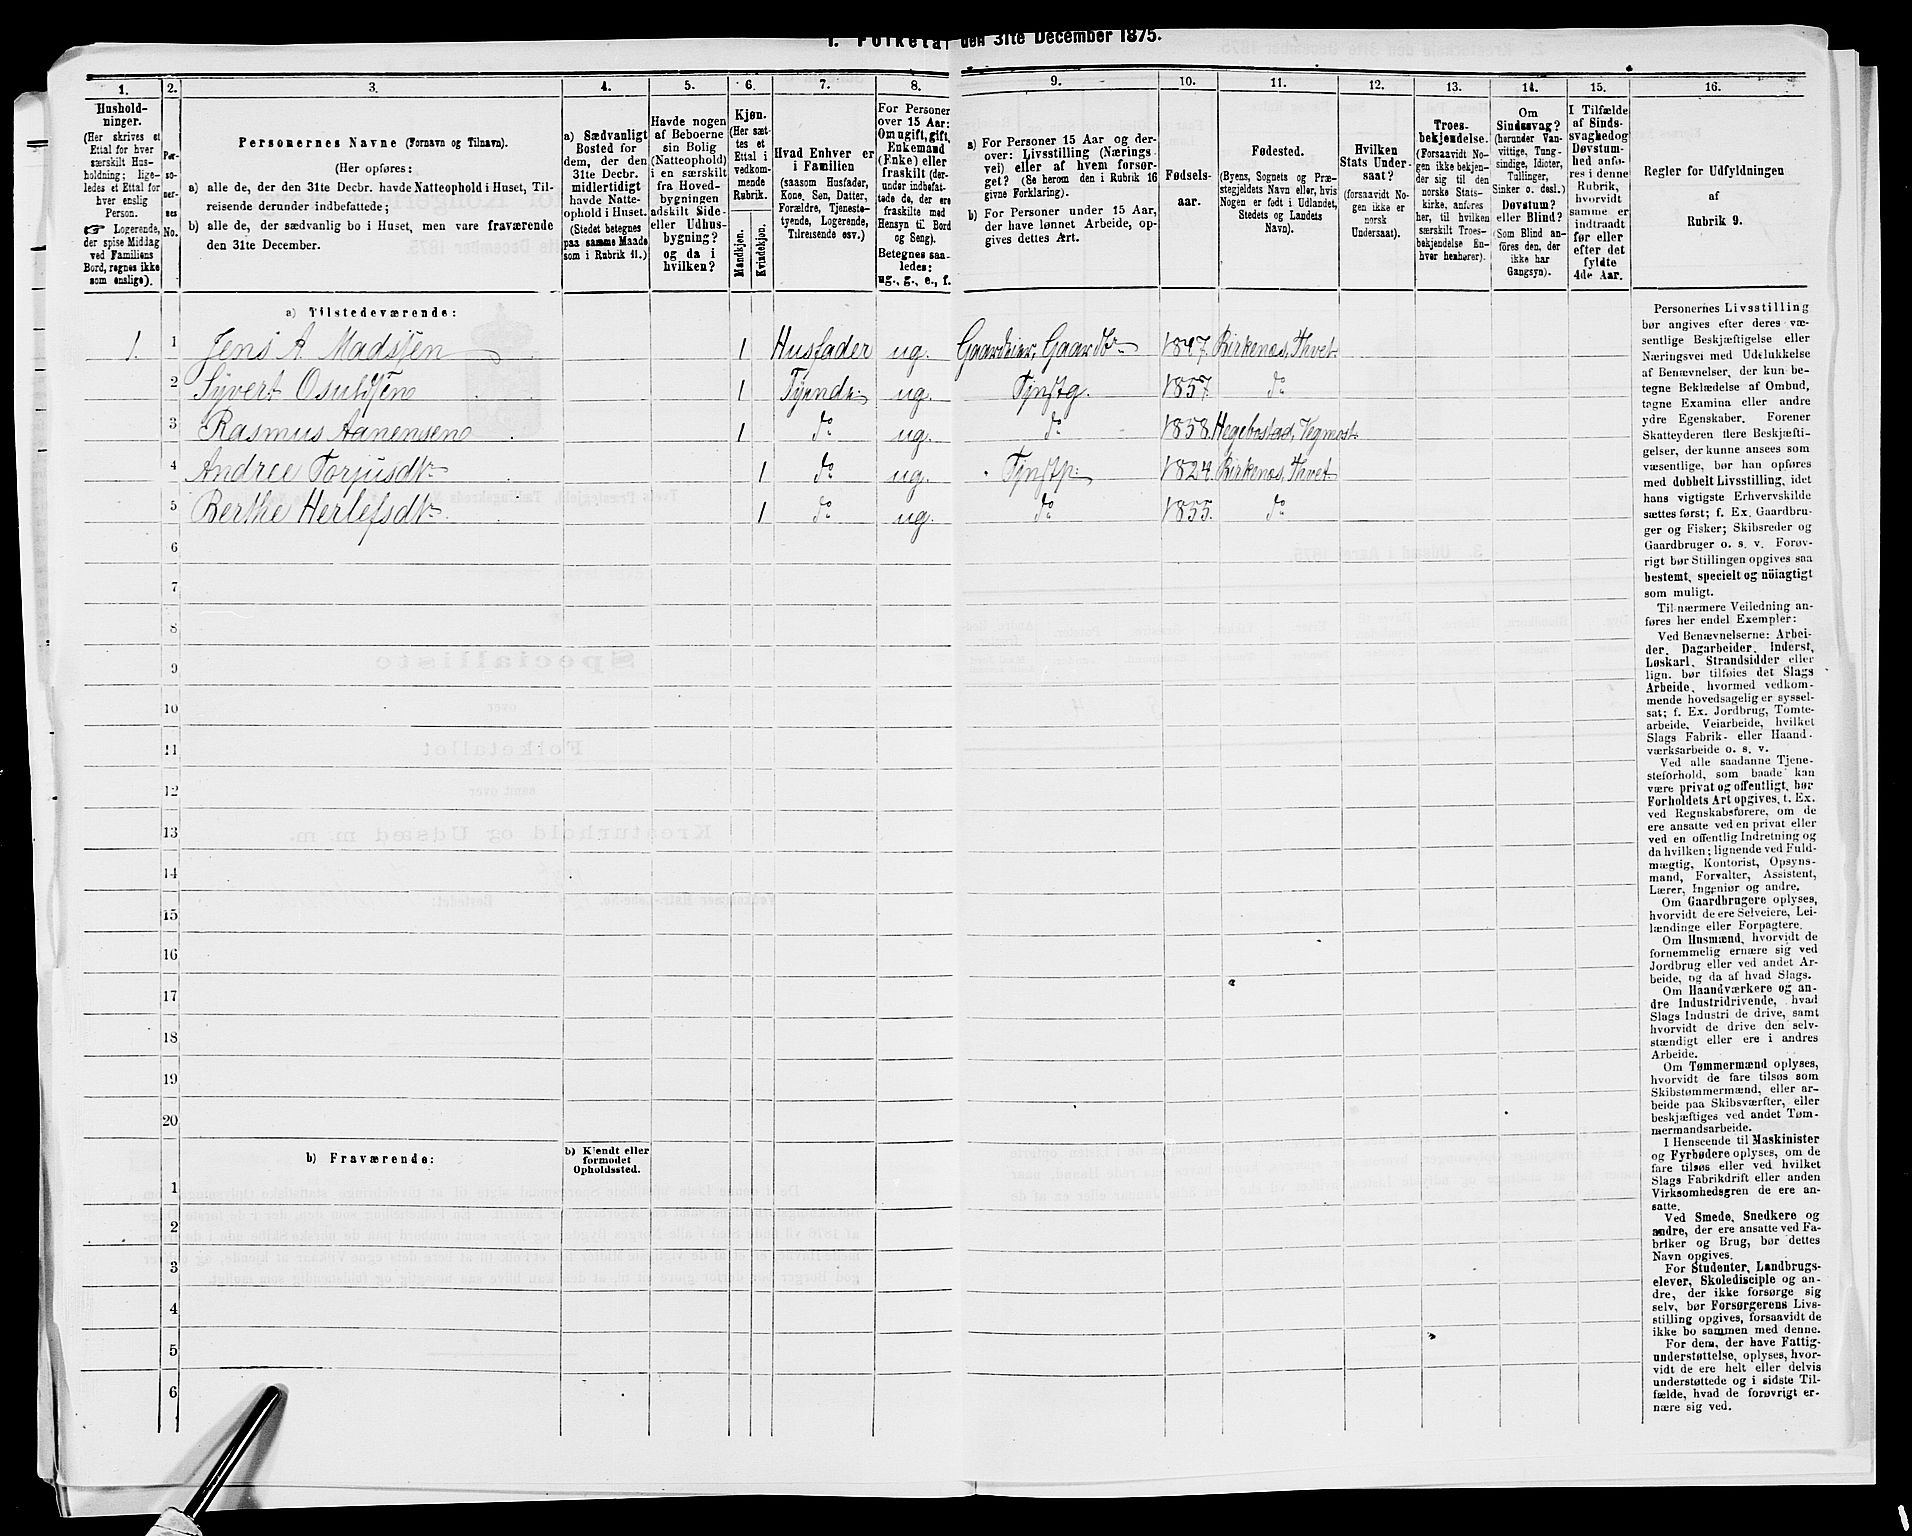 1. Folketal den 31te December 1875.
1. 2. 3. 4. 5. 6. 7. 8. 9. 10. 11. 12. 13. 14. 15. 16.
Hushold-
ninger.
(Her skrives et
Ettal for hver
særskilt Hus-
holdning; lige-
ledes et Ettal for
hver enslig
Person.
☞ Logerende,
der spise Middag
ved Familiens
Bord, regnes ikke
som enslige).
Per-
so-
ner-
nes
No.
Personernes Navne (Fornavn og Tilnavn).
(Her opføres:
a) alle de, der den 31te Decbr. havde Natteophold i Huset, Til-
reisende derunder indbefattede;
b) alle de, der sædvanlig bo i Huset, men vare fraværende
den 31te December.
a) Sædvanligt
Bosted for
dem, der den
31te Decbr.
midlertidigt
havde Natte-
ophold i Huset.
(Stedet betegnes
paa samme Maade
som i Rubrik 11.)
Havde nogen
af Beboerne
sin Bolig
(Natteophold)
i en særskilt
fra Hoved-
bygningen
adskilt Side-
eller Udhus-
bygning?
og da i
hvilken?
Kjøn.
(Her sæt-
tes et
Ettal i
vedkom-
mende
Rubrik.
Mandkjøn.
Kvindekjøn.
Hvad Enhver er
i Familien
(saasom Husfader,
Kone, Søn, Datter,
Forældre, Tjeneste-
tyende, Logerende,
Tilreisende osv.)
For Personer
over 15 Aar:
Om ugift, gift,
Enkemand
(Enke) eller
fraskilt (der-
under indbefat-
tede de, der ere
fraskilte med
Hensyn til Bord
og Seng).
Betegnes saa-
ledes:
ug., g., e., f.
a) For Personer 15 Aar og der-
over: Livsstilling (Nærings-
vei) eller af hvem forsør-
get? (Se herom den i Rubrik 16
givne Forklaring).
b) For Personer under 15 Aar,
der have lønnet Arbeide, op-
gives dettes Art.
Fødsels-
aar.
Fødested.
(Byens, Sognets og Præ-
stegjeldets Navn eller, hvis
Nogen er født i Udlandet,
Stedets og Landets
Navn).
Hvilken
Stats Under-
saat?
(forsaavidt No-
gen ikke er
norsk
Undersaat).
Troes-
bekjendelse.
(Forsaavidt No-
gen ikke bekjen-
der sig til den
norske Stats-
kirke, anføres
her, til hvilken
særskilt Troes-
bekjendelse En-
hver henhører).
Om
Sindssvag?
(herunder Van-
vittige, Tung-
sindige, Idioter,
Tullinger,
Sinker o. desl.)
Døvstum?
eller Blind?
(Som Blind an-
føres den, der
ikke har
Gangsyn).
I Tilfælde
af Sinds-
svaghed og
Døvstum-
hed anfø-
res i denne
Rubrik,
hvorvidt
samme er
indtraadt
før eller
efter det
fyldte
4de Aar.
Regler for Udfyldningen
af
Rubrik 9.
a) Tilstedeværende:
1. 1 Jens A. Madssen 1 Husfader ug. Gaardeier, Gaardbr 1847. Birkenæs, Thvet
2 Syvert Osuldsen 1 Tyende ug. Tjnstg. 1857. do
3 Rasmus Aanensen 1 do ug. do 1858. Hegebostad, Vegmost.
4 Andree Torjusdtr 1 do ug. Tjnstp: 1824. Birkenæs, Thvet
5 Berthe Herlefsdtr. 1 do ug. do 1855. do
6
7
8
9
10
11
12
13
14
15
16
17
18
19
20
b) Fraværende:
b) Kjendt eller
formodet
Opholdssted.
1
2
3
4
5
6
Personernes Livsstilling
bør angives efter deres væ-
sentlige Beskjæftigelse eller
Næringsvei med Udelukkelse
af Benævnelser, der kun be-
tegne Beklædelse af Ombud,
tagne Examina eller andre
ydre Egenskaber. Forener
Skatteyderen flere Beskjæfti-
gelser, der kunne ansees som
væsentlige, bør han opføres
med dobbelt Livsstilling, idet
hans vigtigste Erhvervskilde
sættes først; f. Ex. Gaardbru-
ger og Fisker; Skibsreder og
Gaardbruger o. s. v. Forøv-
rigt bør Stillingen opgives saa
bestemt, specielt og nöiagtigt
som muligt.
Til nærmere Veiledning an-
føres her endel Exempler:
Ved Benævnelserne: Arbei-
der, Dagarbeider, Inderst,
Løskarl, Strandsidder eller
lign. bør tilføies det Slags
Arbeide, hvormed vedkom-
mende hovedsagelig er syssel-
sat; f. Ex. Jordbrug, Tomte-
arbeide, Veiarbeide, hvilket
Slags Fabrik- eller Haand-
værksarbeide o. s. v.
Ved alle saadanne Tjene-
steforhold, som baade kan
være privat og offentligt, bør
Forholdets Art opgives, t. Ex.
ved Regnskabsførere, om de
ere ansatte ved en privat eller
ved en offentlig Indretning og
da hvilken; lignende ved Fuld-
mægtig, Kontorist, Opsyns-
mand, Forvalter, Assistent,
Lærer, Ingeniør og andre.
Om Gaardbrugere oplyses,
hvorvidt de ere Selveiere, Lei-
lændinge eller Forpagtere.
Om Husmænd, hvorvidt de
fornemmelig ernære sig ved
Jordbrug eller ved andet Ar-
beide, og da af hvad Slags.
Om Haandværkere og an-
dre Industridrivende, hvad
Slags Industri de drive, samt
hvorvidt de drive den selv-
stændigt eller ere i andres
Arbeide.
Om Tømmermænd oplyses,
hvorvidt de fare tilsøs som
Skibstømmermænd, eller ar-
beide paa Skibsværfter, eller
beskjæftiges ved andet Tøm-
mermandsarbeide.
I Henseende til Maskinister
og Fyrbødere oplyses, om de
fare tilsøs eller ved hvilket
Slags Fabrikdrift eller anden
Virksomhedsgren de ere an-
satte.
Ved Smede, Snedkere og
andre, der ere ansatte ved Fa-
briker og Brug, bør dettes
Navn opgives.
For Studenter, Landbrugs-
elever, Skoledisciple og an-
dre, der ikke forsørge sig
selv, bør Forsørgerens Livs-
stilling opgives, forsaavidt de
ikke bo sammen med denne.
For dem, der have Fattig-
understøttelse, oplyses, hvor-
vidt de ere helt eller delvis
understøttede og i sidste Til-
fælde, hvad de forøvrigt er-
nære sig ved.